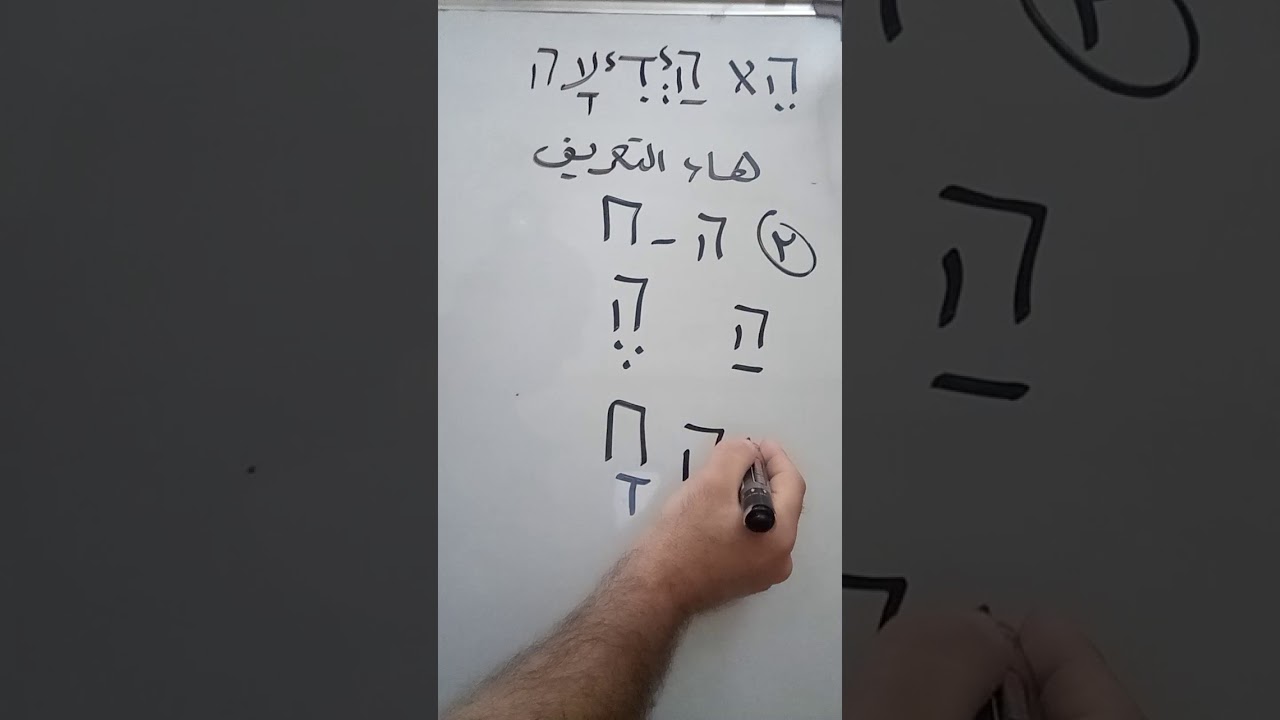 הֵא הַיְּדִיעָה
هاء التعريف
٢ ה - ח
הַ הֶ
ה חָ